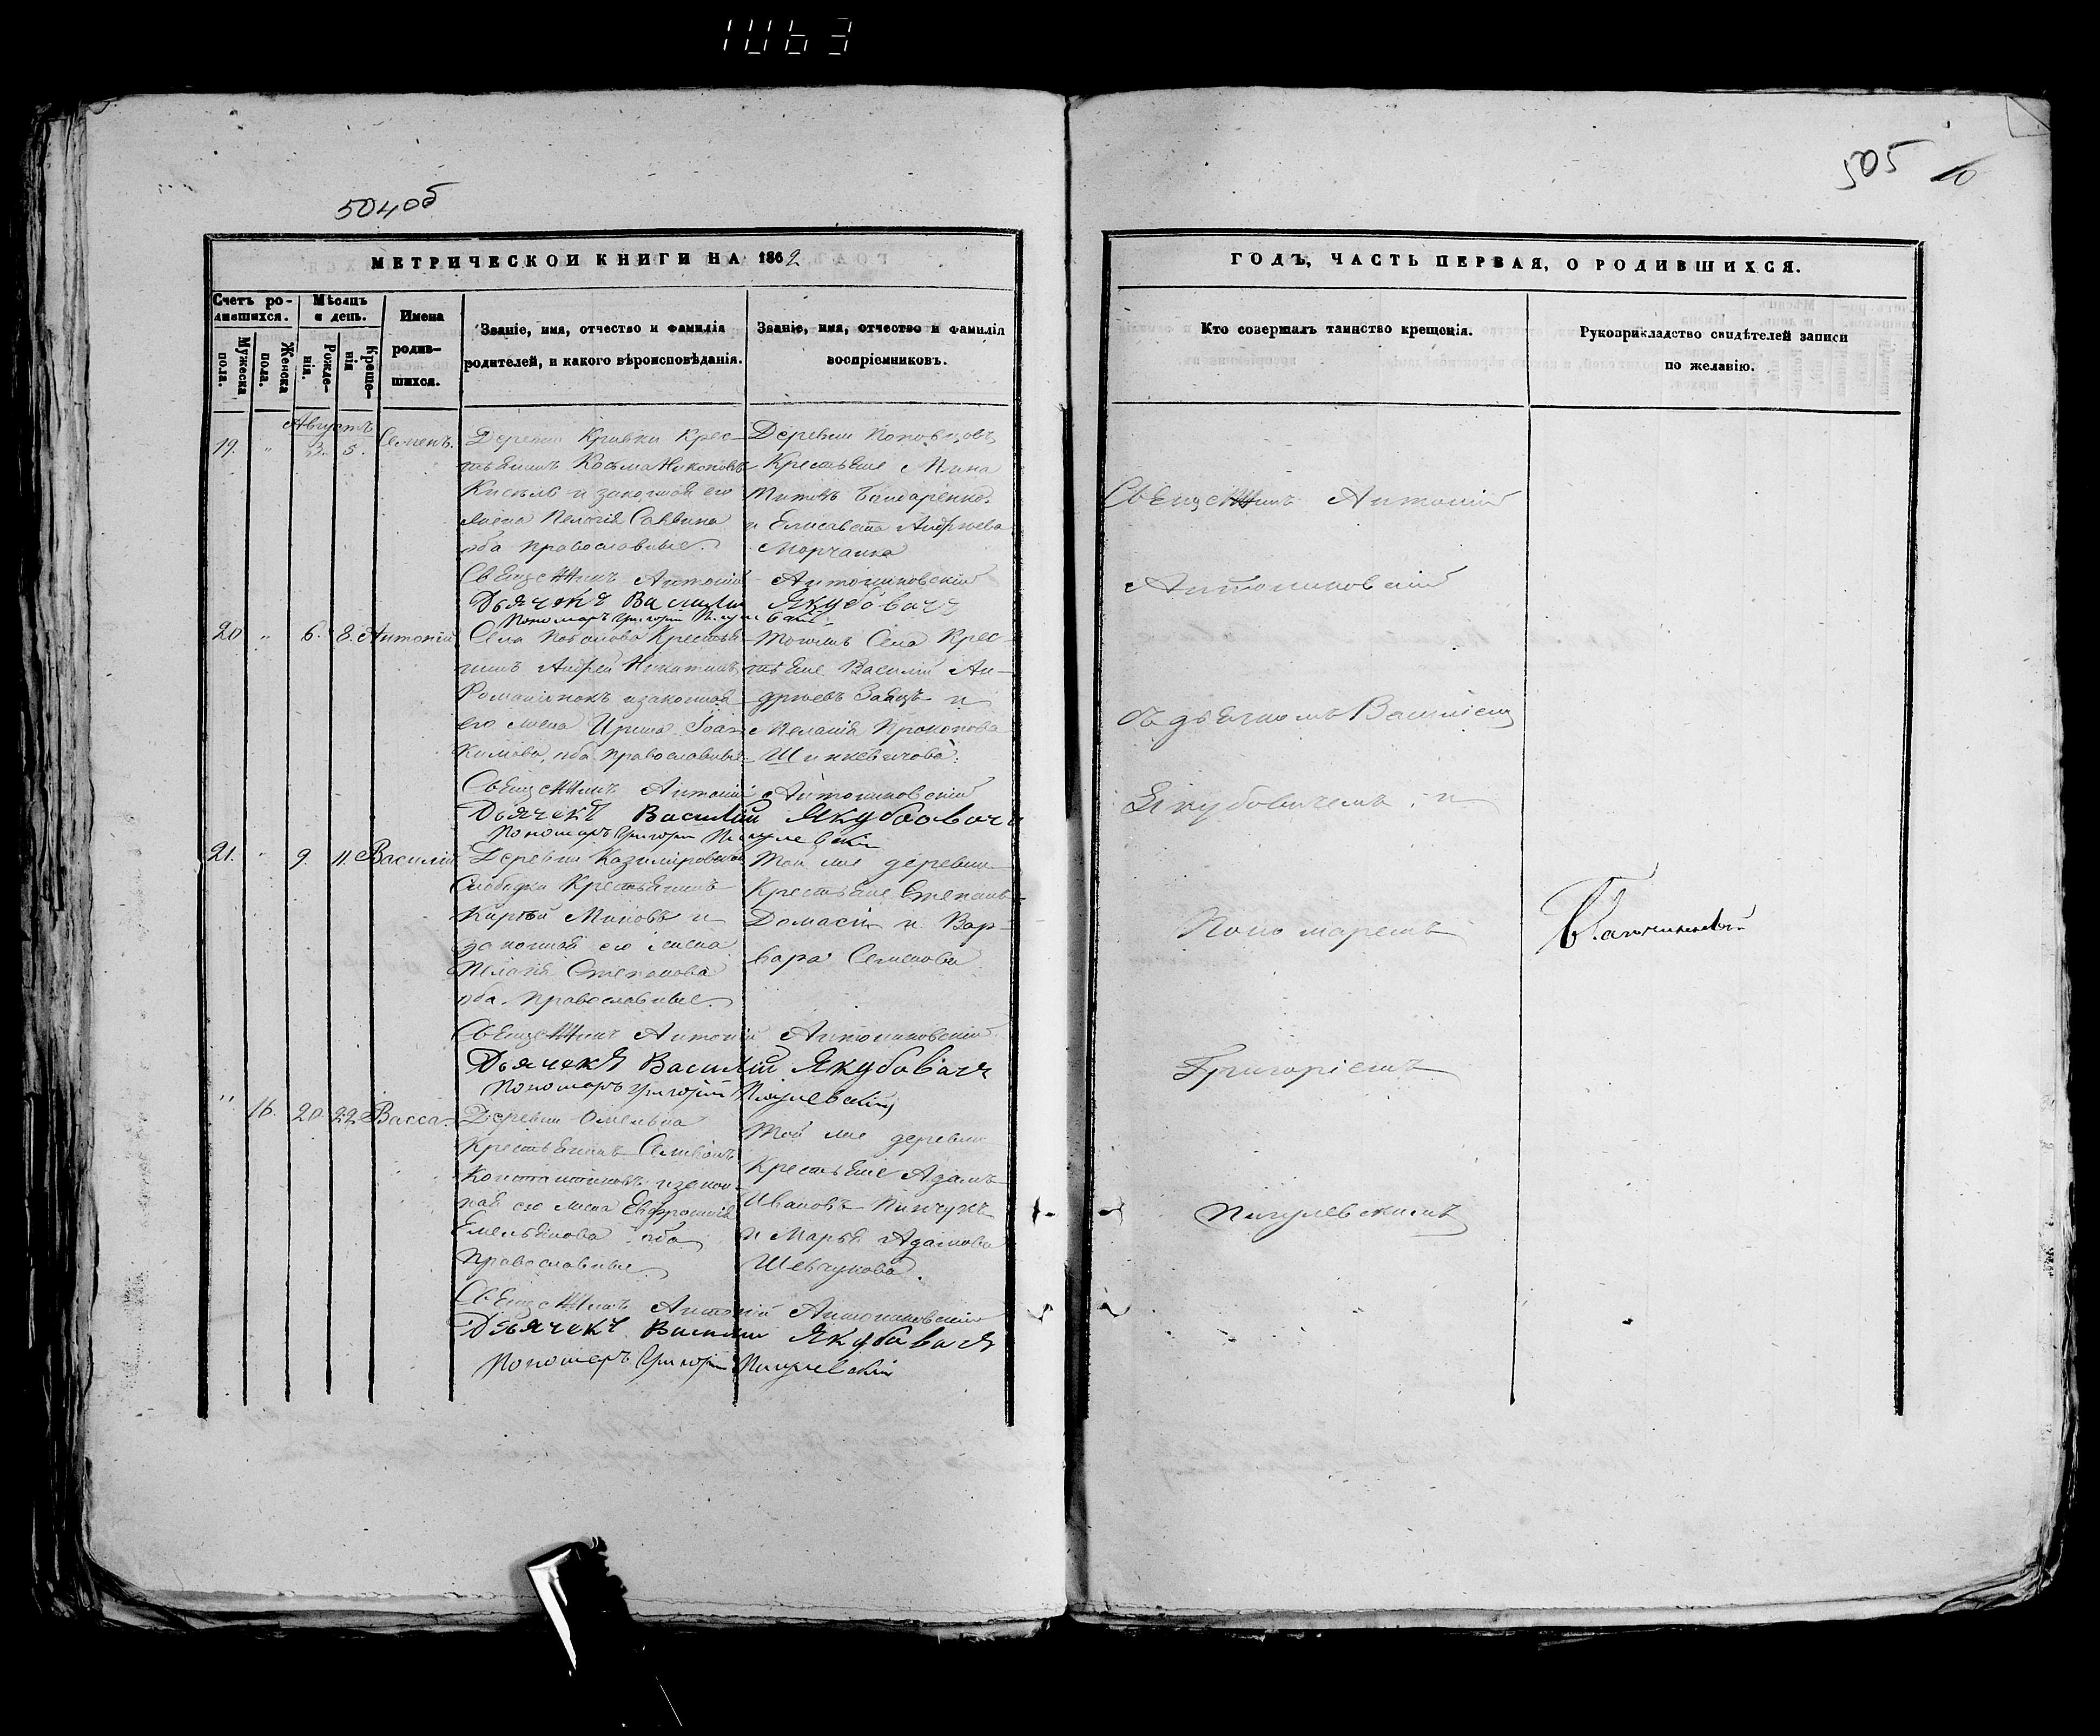 1063
504об
505
10
МЕТРИЧЕСКОЙ КНИГИ НА 1862
Счетъ ро-
дившихся.
Мѣсяцъ
и день.
Мужеска
пола.
Женска
пола.
Рожде-
нія.
Креще-
нія
Имена
родив-
шихся.
Званіе, имя, отчество и фамилія
родителей, и какого вѣроисповѣданія.
Званіе, имя, отчество и фамилія
воспріемниковъ.
Августъ
19. " 3. 5. Семенъ.
Деревни Кривки Крес-
тьянинъ Косьма Никоновъ
Кисель и законная его
жена Пелагія Саввина
оба православные.
Деревни
Крестьяне Мина
Титовъ Бондаренко
и Елисавета Андреева
Морчанка
Священникъ Антоній Антониновскій
Дьячекъ Василій Якубовичъ
Пономарь Григорій
20 " 6. 8. Антоній
Села Крестья-
нинъ Андрей Никитинъ
Романюкъ и законная
его жена Ирина Іоа-
кимова, оба православные
Тогожъ Села Крес-
тьяне Василій Ан-
дреевъ Заяцъ и
Пелагія Прокопова
Шинкевичова.
Священникъ Антоній Антониновскій
Дьячекъ Василій Якубовичъ
Пономарь Григорій
21. " 9. 11. Василій
Деревни Казимировской
Слободки Крестьянинъ
Миновъ и
законная его жена
Пелагія Степанова
оба православные.
Той же деревни
Крестьяне Степанъ
и Вар-
вара Семенова
Священникъ Антоній Антониновскій
Дьячекъ Василій Якубовичъ
Пономарь Григорій
" 16. 20 22 Васса
Деревни Омельна
Крестьянинъ
Константиновъ и закон-
ная его жена Евфросинія
Емельянова оба
православные
Той же деревни
Крестьяне Адамъ
Ивановъ Пинчукъ
и Марья Адамова
Шевчукова.
Священникъ Антоній Антониновскій
Дьячекъ Василій Якубовичъ
Пономарь Григорій
ГОДЪ, ЧАСТЬ ПЕРВАЯ, О РОДИВШИХСЯ.
Кто совершалъ таинство крещенія.
Рукоприкладство свидѣтелей записи
по желанію.
Священникъ Антоній
Антониновскій
съ дьячкомъ Василіемъ
Якубовичемъ и
Пономаремъ
Григоріемъ